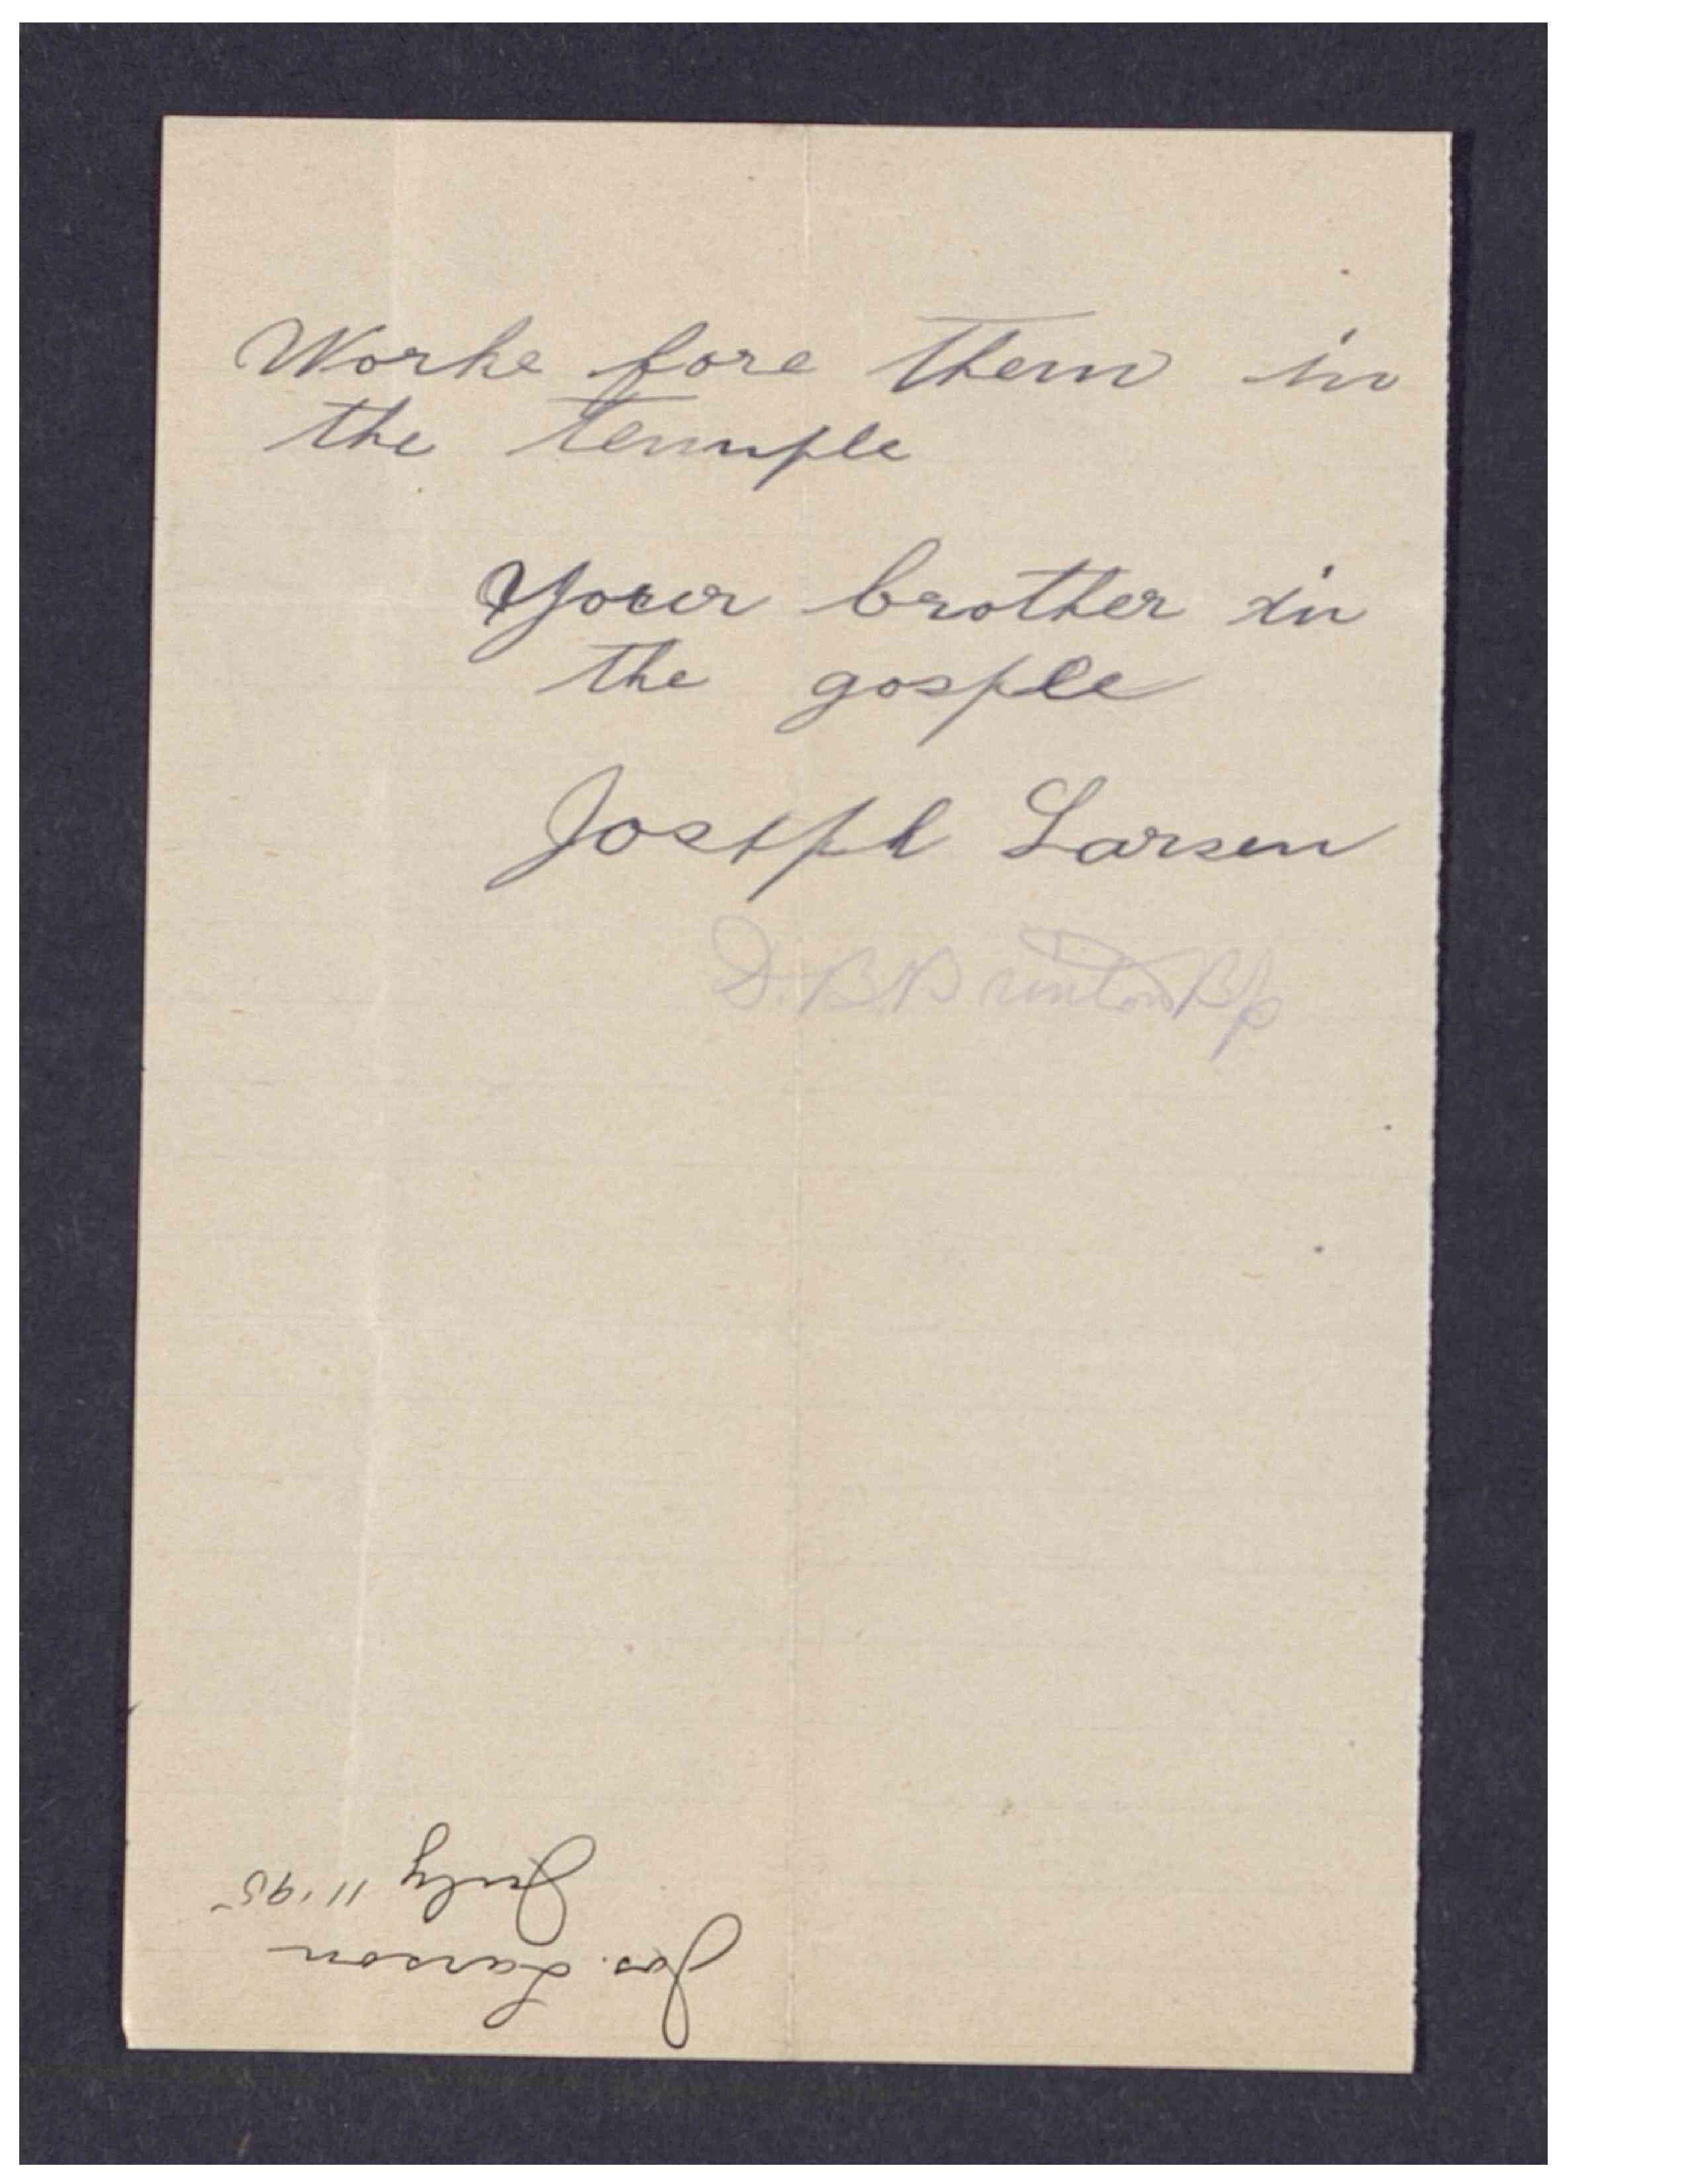 Worke fore them in
the temple
Your brother in
the gosple
Joseph Larsen
D. B. Brinton Bp
Jos. Larson
July 11 '95